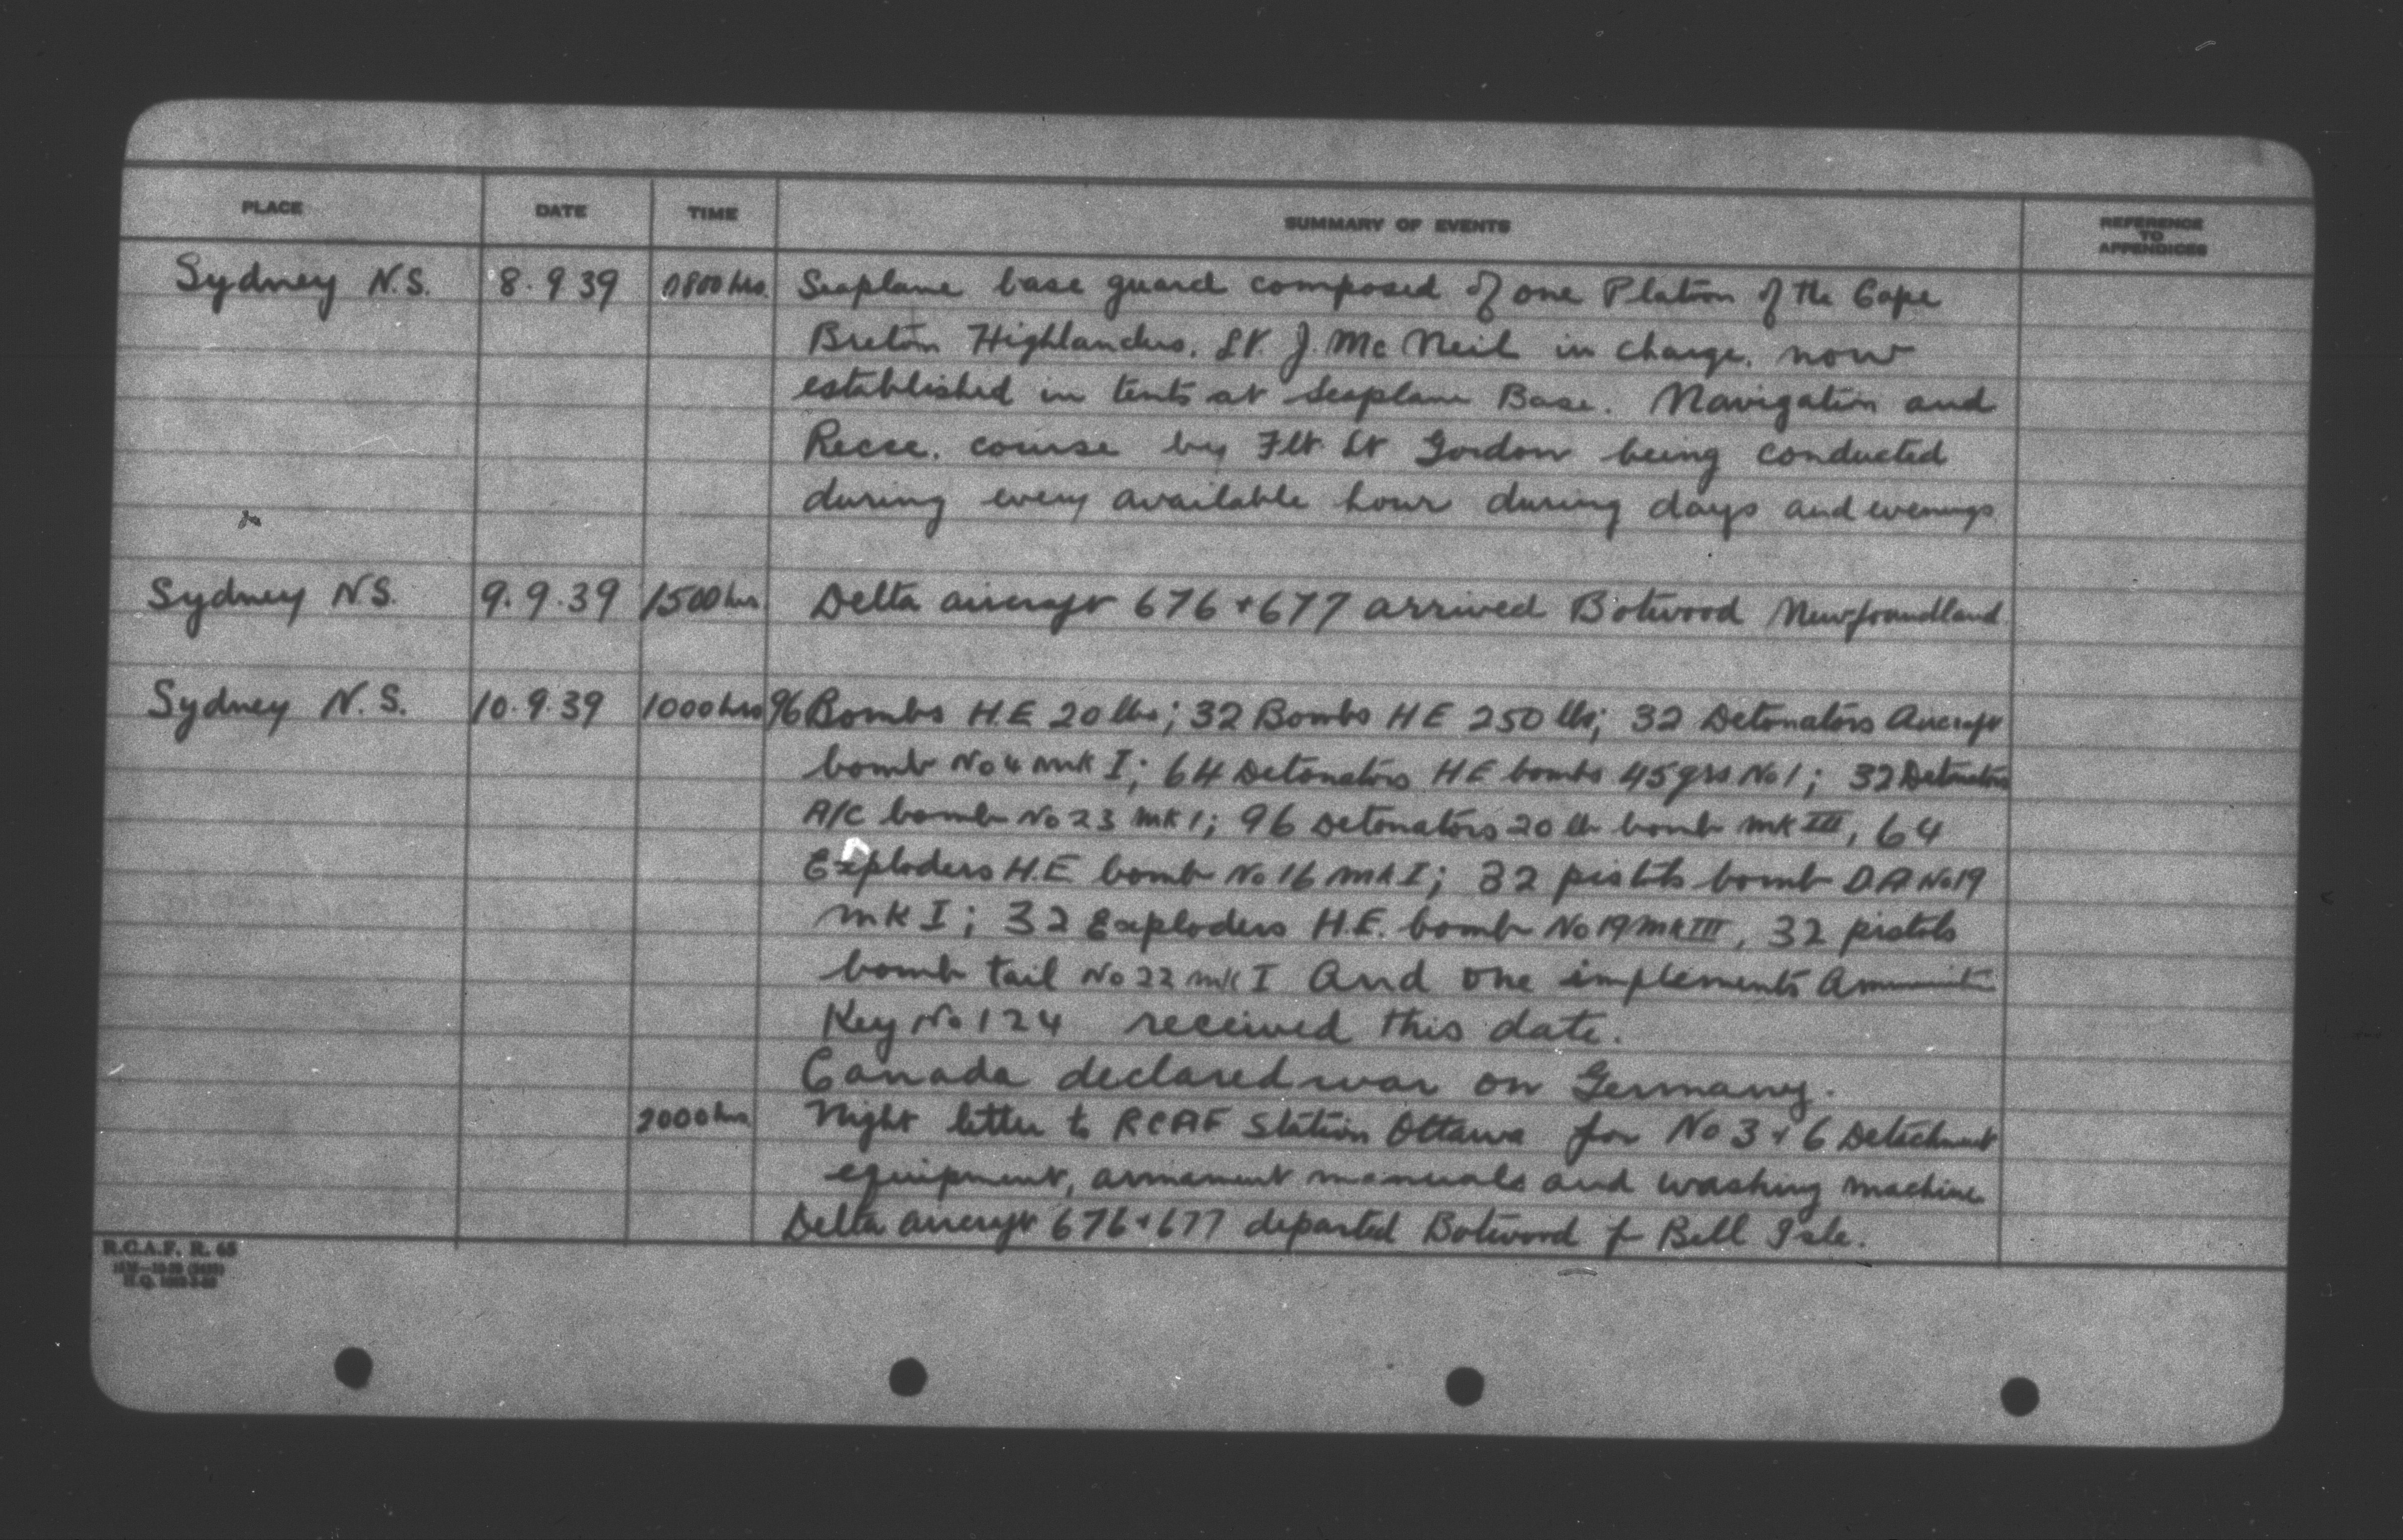 PLACE DATE TIME SUMMARY OF EVENTS REFERENCE TO APPENDICES
Sydney N.S. 8.9 39 0800 hrs. Seaplane base guard composed of one Platoon of the Cape
Breton Highlanders. Lt. J. McNeil in charge. now
established in tents at Seaplane Base. Navigation and
Recce. course by Flt Lt Gordon being conducted
during every available hour during days and evenings
Sydney N.S. 9.9.39 1500 hrs Delta aircraft 676 + 677 arrived Botwood Newfoundland
Sydney N.S. 10.9.39 1000 hrs 96 Bombs H.E 20 lbs; 32 Bombs HE 250 lbs; 32 Detonators Aircraft
bomb No 4 mk I; 64 Detonators HE bombs 45 grs No 1; 32 Detonators
A/C bomb No 23 mk 1; 96 Detonators 20 lb bomb mk III, 64
Exploders H.E bomb No 16 mk I; 32 pistols bomb D.A No 19
mk I; 32 Exploders H.E. bomb No 19 mk III, 32 pistols
bomb tail No 22 mk I And one implements
Key No 124 received this date.
Canada declared war on Germany.
2000 hrs Night letter to RCAF Station Ottawa for No 3 + 6 Detachment
equipment, armament manuals and washing machine
Delta aircraft 676 + 677 departed Botwood f Bell Isle.
R.C.A.F. R. 65